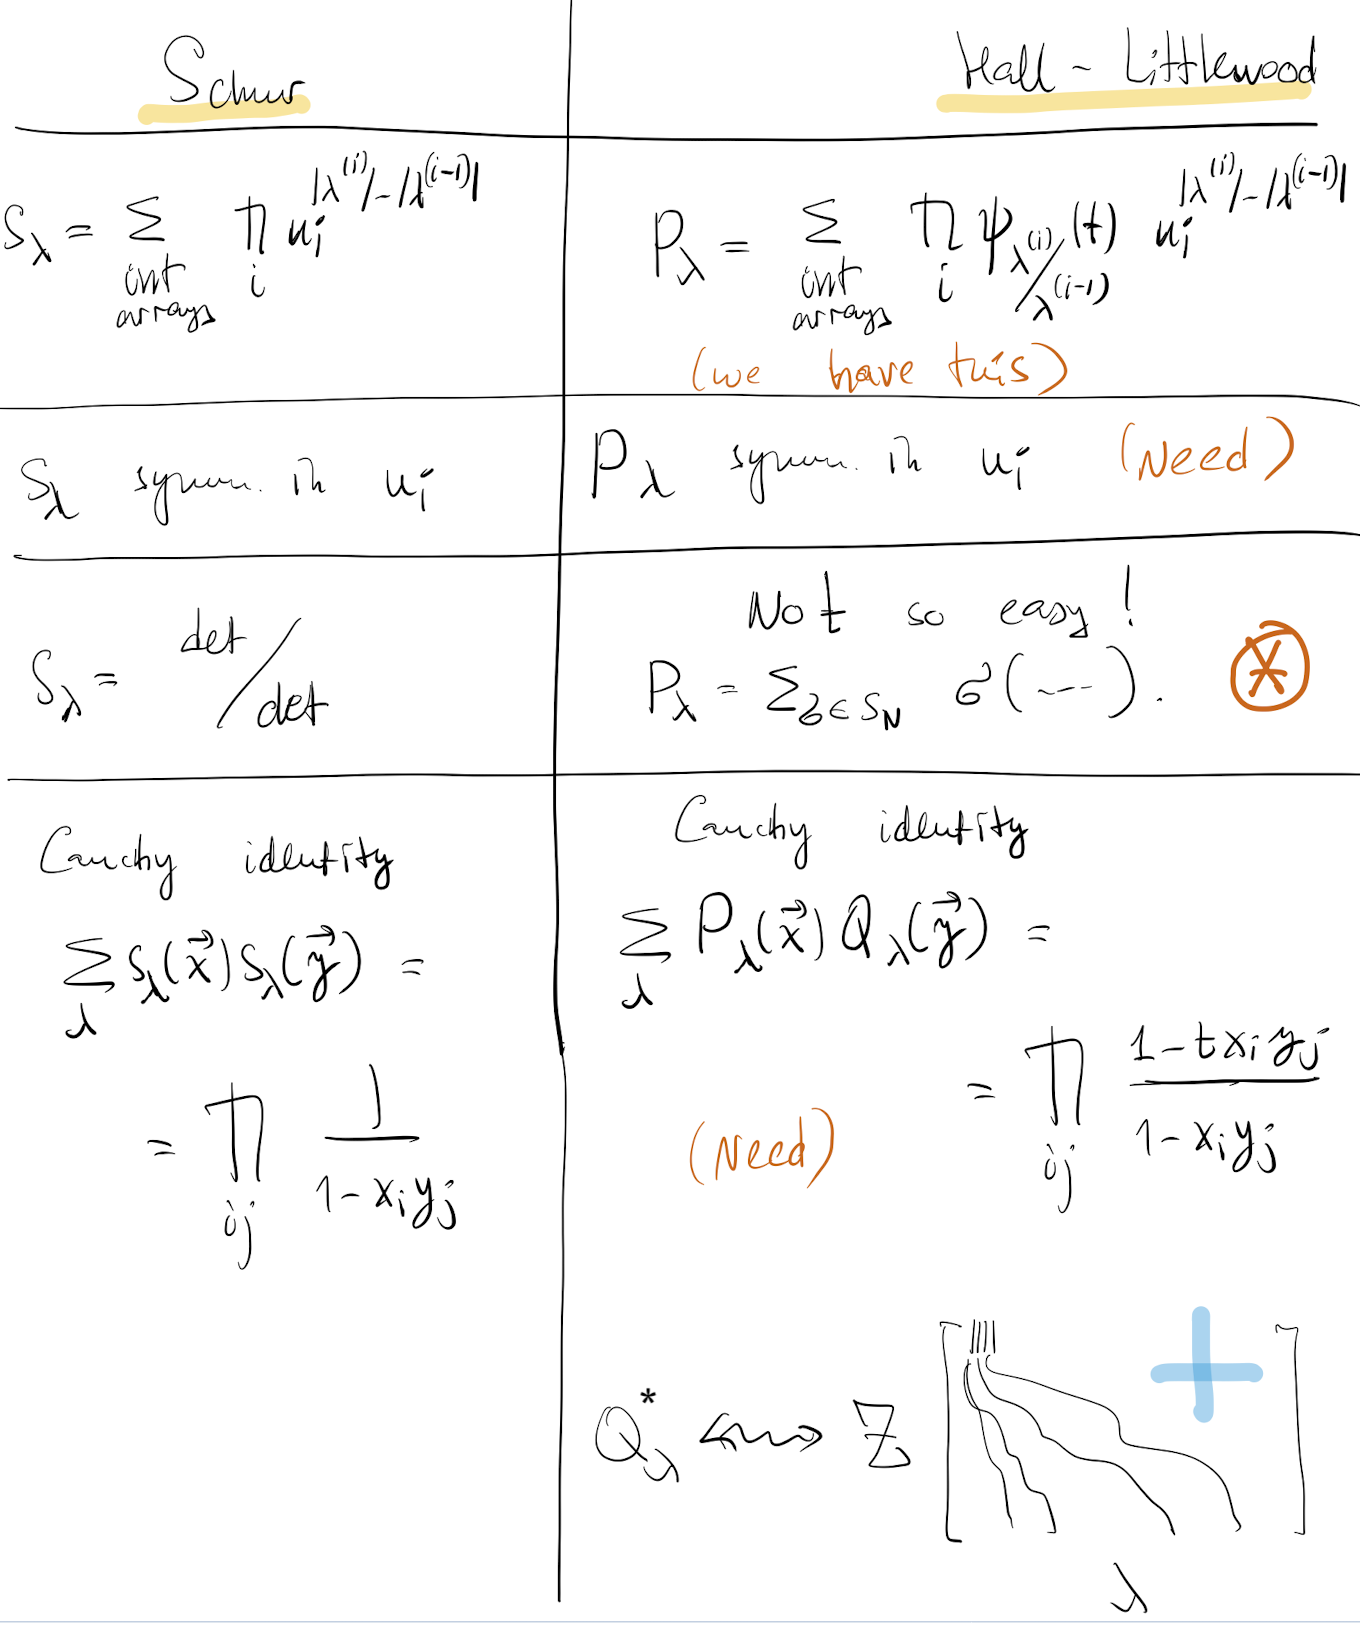 Schur
Hall - Littlewood
S_λ = Σ_{int arrays} Π_i u_i^{|λ^{(i)}|-|λ^{(i-1)}|}
P_λ = Σ_{int arrays} Π_i ψ_{λ^{(i)}/λ^{(i-1)}}(t) u_i^{|λ^{(i)}|-|λ^{(i-1)}|}
(we have this)
S_λ symm. in u_i
P_λ symm. in u_i (Need)
S_λ = det/det
Not so easy!
P_λ = Σ_{σ∈S_N} σ(---). *
Cauchy identity
Σ_λ S_λ(x⃗) S_λ(y⃗) =
= Π_{ij} 1/(1-x_i y_j)
Cauchy identity
Σ_λ P_λ(x⃗) Q_λ(y⃗) =
= Π_{ij} (1-t x_i y_j)/(1-x_i y_j)
(Need)
Q*_λ ⟷ Z [ + ]
λ